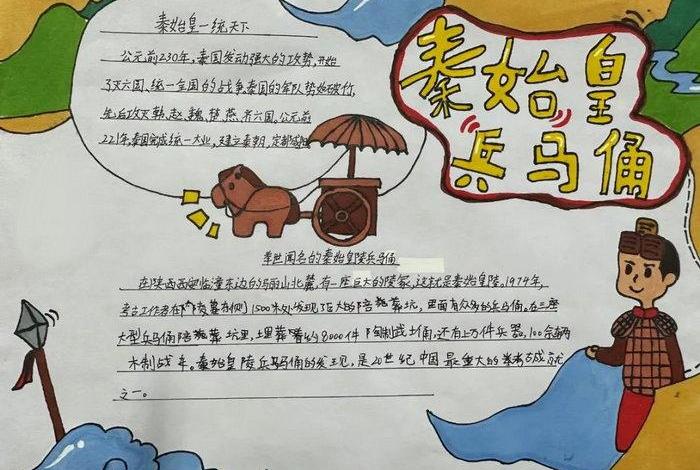 秦始皇兵马俑
秦始皇一统天下
公元前230年，秦国发动强大的攻势，开始
了灭六国，统一全国的战争秦国的军队势如破竹，
先后攻灭韩、赵、魏、楚、燕、齐六国，公元前
221年，秦国完成统一大业，建立秦朝，定都咸阳
举世闻名的秦始皇陵兵马俑
在陕西西安临潼东边的骊山北麓，有一座巨大的陵冢，这就是秦始皇陵。1974年，
考古工作者在陵墓东侧1500米处发现了巨大的陪葬坑，里面有众多的兵马俑。在三座
大型兵马俑陪葬坑里，土里葬着约8000件陶制战士俑，还有上万件兵器，100余辆
木制战车。秦始皇陵兵马俑的发现，是20世纪中国最重大的考古成就
之一。